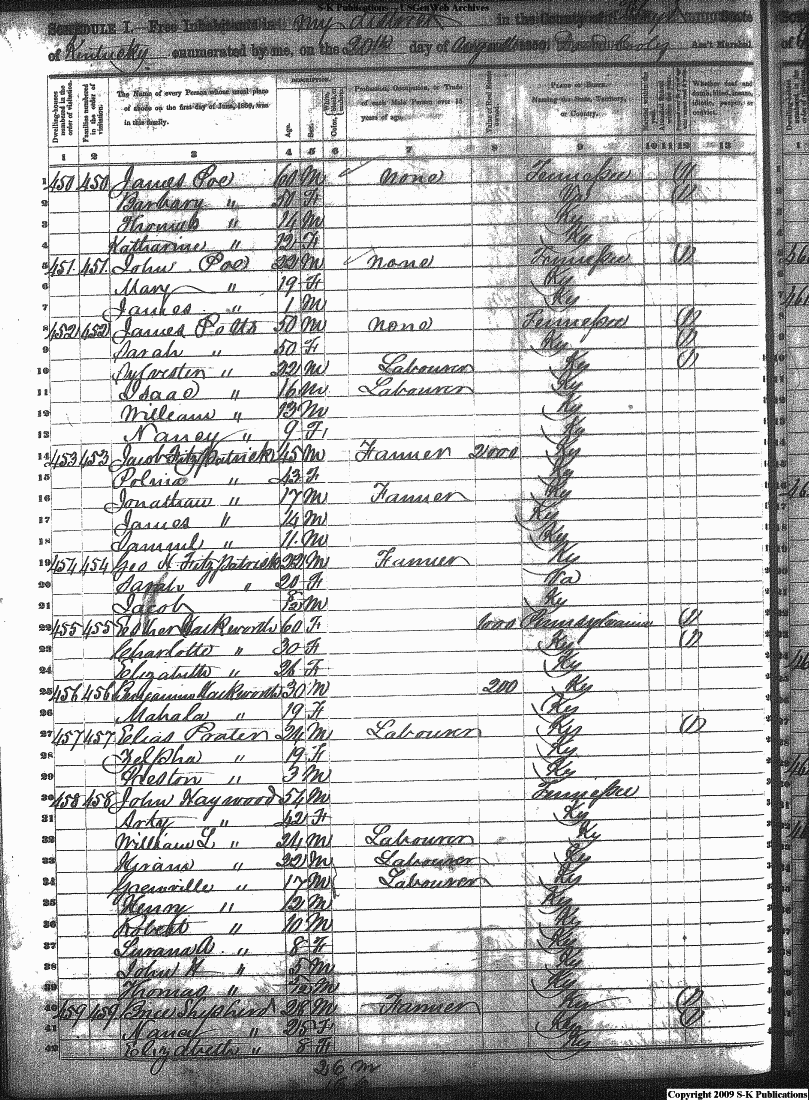 S-K Publications - USGenWeb Archives
SCHEDULE I. Free Inhabitants in My District in the County of Floyd State
of Kentucky enumerated by me, on the 20th day of August 1850. Ass't Marshal.
Dwelling-houses numbered in the order of visitation.
Families numbered in the order of visitation.
The Name of every Person whose usual place of abode on the first day of June, 1850, was in this family.
DESCRIPTION.
Age.
Sex.
Profession, Occupation, or Trade of each Male Person over 15 years of age.
Value of Real Estate owned.
PLACE OF BIRTH. Naming the State, Territory, or Country.
Whether deaf and dumb, blind, insane, idiotic, pauper, or convict.
1 2 3 4 5 6 7 8 9 10 11 12 13
1 450 450 James Poe 60 M None Tennessee 1
2 Barbary " 50 F 1
3 Thomas " 14 M Ky
4 Katharine " 12 F Ky
5 451 451 John Poe 22 M None Tennessee 1
6 Mary " 19 F Ky
7 James " 1 M Ky
8 452 452 James Potts 50 M None Tennessee 1
9 Sarah " 50 F Ky 1
10 Sylvester " 22 M Labourer Ky 1
11 Isaac " 16 M Labourer Ky
12 William " 13 M Ky
13 Nancy " 9 F Ky
14 453 453 Jacob Fitzpatrick 45 M Farmer 2000 Ky
15 Polina " 43 F Ky
16 Jonathan " 17 M Farmer Ky
17 James " 14 M Ky
18 Samuel " 11 M Ky
19 454 454 Geo H Fitzpatrick 22 M Farmer Ky
20 Sarah " 20 F Va
21 Jacob 8/12 M Ky
22 455 455 Esther Hackworth 60 F 1000 Pennsylvania 1
23 Charlotte " 30 F Ky 1
24 Elizabeth " 26 F Ky
25 456 456 Benjamin Hackworth 30 M 200 Ky
26 Mahala " 19 F Ky
27 457 457 Elias Prater 24 M Labourer Ky 1
28 Zelpha " 19 F Ky
29 Preston " 3 M Ky
30 458 458 John Haywood 54 M Tennessee
31 Arty " 42 F Ky
32 William L " 24 M Labourer Ky
33 Hiram " 22 M Labourer Ky
34 Greenville " 17 M Labourer Ky
35 Henry " 12 M Ky
36 Robert " 10 M Ky
37 Lurana A. " 8 F Ky
38 John H " 5 M Ky
39 Thomas " M Ky
40 459 459 Price Shepherd 28 M Farmer Ky 1
41 Nancy " 25 F Ky 1
42 Elizabeth " 8 F Ky
26 M
16 F
Copyright 2009 S-K Publications